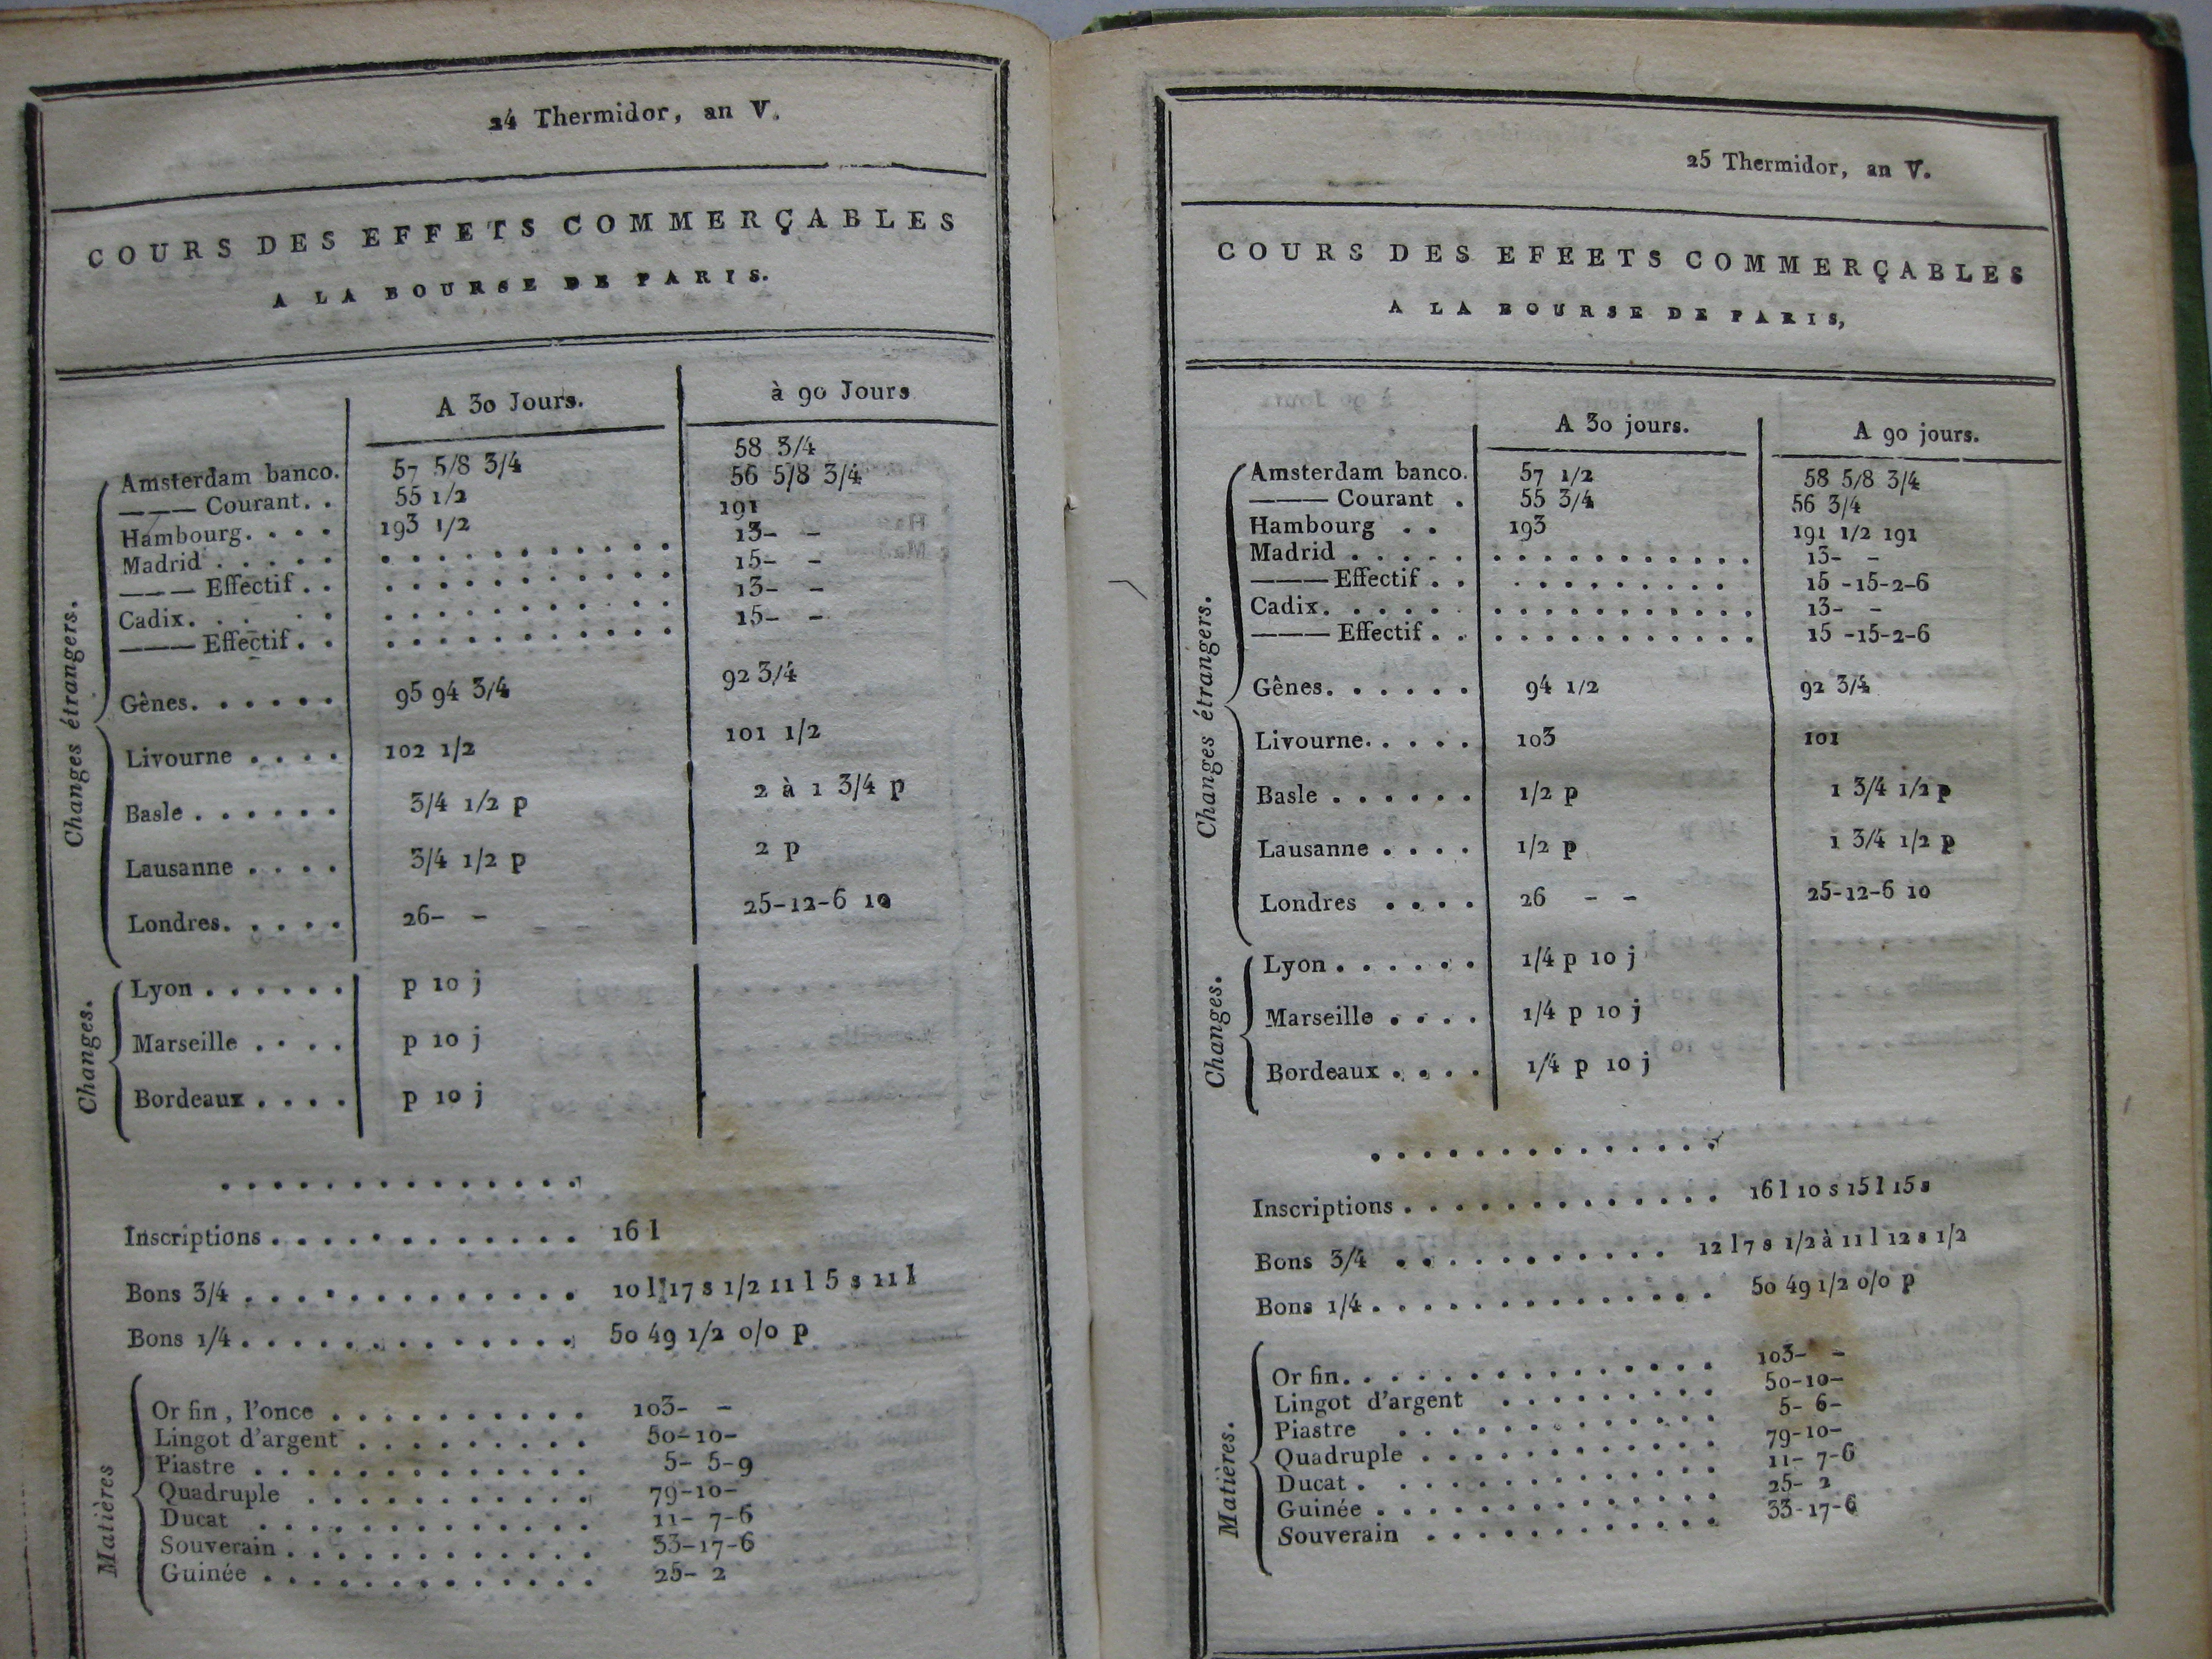 24 Thermidor, an V.
COURS DES EFFETS COMMERÇABLES
A LA BOURSE DE PARIS.
A 30 Jours. à 90 Jours
Changes étrangers.
Amsterdam banco. 57 5/8 3/4 58 3/4
——— Courant. . 55 1/2 56 5/8 3/4
Hambourg. . . . 193 1/2 191
Madrid . . . . . . . . . . . . . . . . 13- -
——— Effectif . . . . . . . . . . . . . 15- -
Cadix. . . . . . . . . . . . . . . . 13- -
——— Effectif . . . . . . . . . . . . . 15- -
Gênes. . . . . . 95 94 3/4 92 3/4
Livourne . . . . 102 1/2 101 1/2
Basle . . . . . . 3/4 1/2 p 2 à 1 3/4 p
Lausanne . . . . 3/4 1/2 p 2 p
Londres. . . . . 26- - 25-12-6 10
Changes.
Lyon . . . . . . p 10 j
Marseille . . . . p 10 j
Bordeaux . . . . p 10 j
. . . . . . . . . . . . . .
Inscriptions . . . . . . . . . . . . 16 l
Bons 3/4 . . . . . . . . . . . . . 10 l 17 s 1/2 11 l 5 s 11 l
Bons 1/4 . . . . . . . . . . . . . 50 49 1/2 0/0 p
Matières
Or fin, l'once . . . . . . . . . . 103- -
Lingot d'argent . . . . . . . . . 50-10-
Piastre . . . . . . . . . . . . . 5- 5-9
Quadruple . . . . . . . . . . . 79-10-
Ducat . . . . . . . . . . . . . 11- 7-6
Souverain . . . . . . . . . . . . 33-17-6
Guinée . . . . . . . . . . . . . 25- 2
25 Thermidor, an V.
COURS DES EFEETS COMMERÇABLES
A LA BOURSE DE PARIS,
A 30 jours. A 90 jours.
Changes étrangers.
Amsterdam banco. 57 1/2 58 5/8 3/4
——— Courant . 55 3/4 56 3/4
Hambourg . . 193 191 1/2 191
Madrid . . . . . . . . . . . . . . . . 13- -
——— Effectif . . . . . . . . . . . . 15 -15-2-6
Cadix. . . . . . . . . . . . . . . . 13- -
——— Effectif . . . . . . . . . . . . . 15 -15-2-6
Gênes. . . . . . 94 1/2 92 3/4
Livourne. . . . . 103 101
Basle . . . . . . 1/2 p 1 3/4 1/2 p
Lausanne . . . . 1/2 p 1 3/4 1/2 p
Londres . . . . 26 - - 25-12-6 10
Changes.
Lyon . . . . . . 1/4 p 10 j
Marseille . . . . 1/4 p 10 j
Bordeaux . . . . 1/4 p 10 j
. . . . . . . . . . . . . .
Inscriptions . . . . . . . . . . . . . 16 l 10 s 15 l 15 s
Bons 3/4 . . . . . . . . . . . 12 l 7 s 1/2 à 11 l 12 s 1/2
Bons 1/4 . . . . . . . . . . . . . . 50 49 1/2 0/0 p
Matières.
Or fin. . . . . . . . . . . . . . . 103- -
Lingot d'argent . . . . . . . . . 50-10-
Piastre . . . . . . . . . . . . . 5- 6-
Quadruple . . . . . . . . . . . . 79-10-
Ducat . . . . . . . . . . . . . . 11- 7-6
Guinée . . . . . . . . . . . . . . 25- 2
Souverain . . . . . . . . . . . . 33-17-6